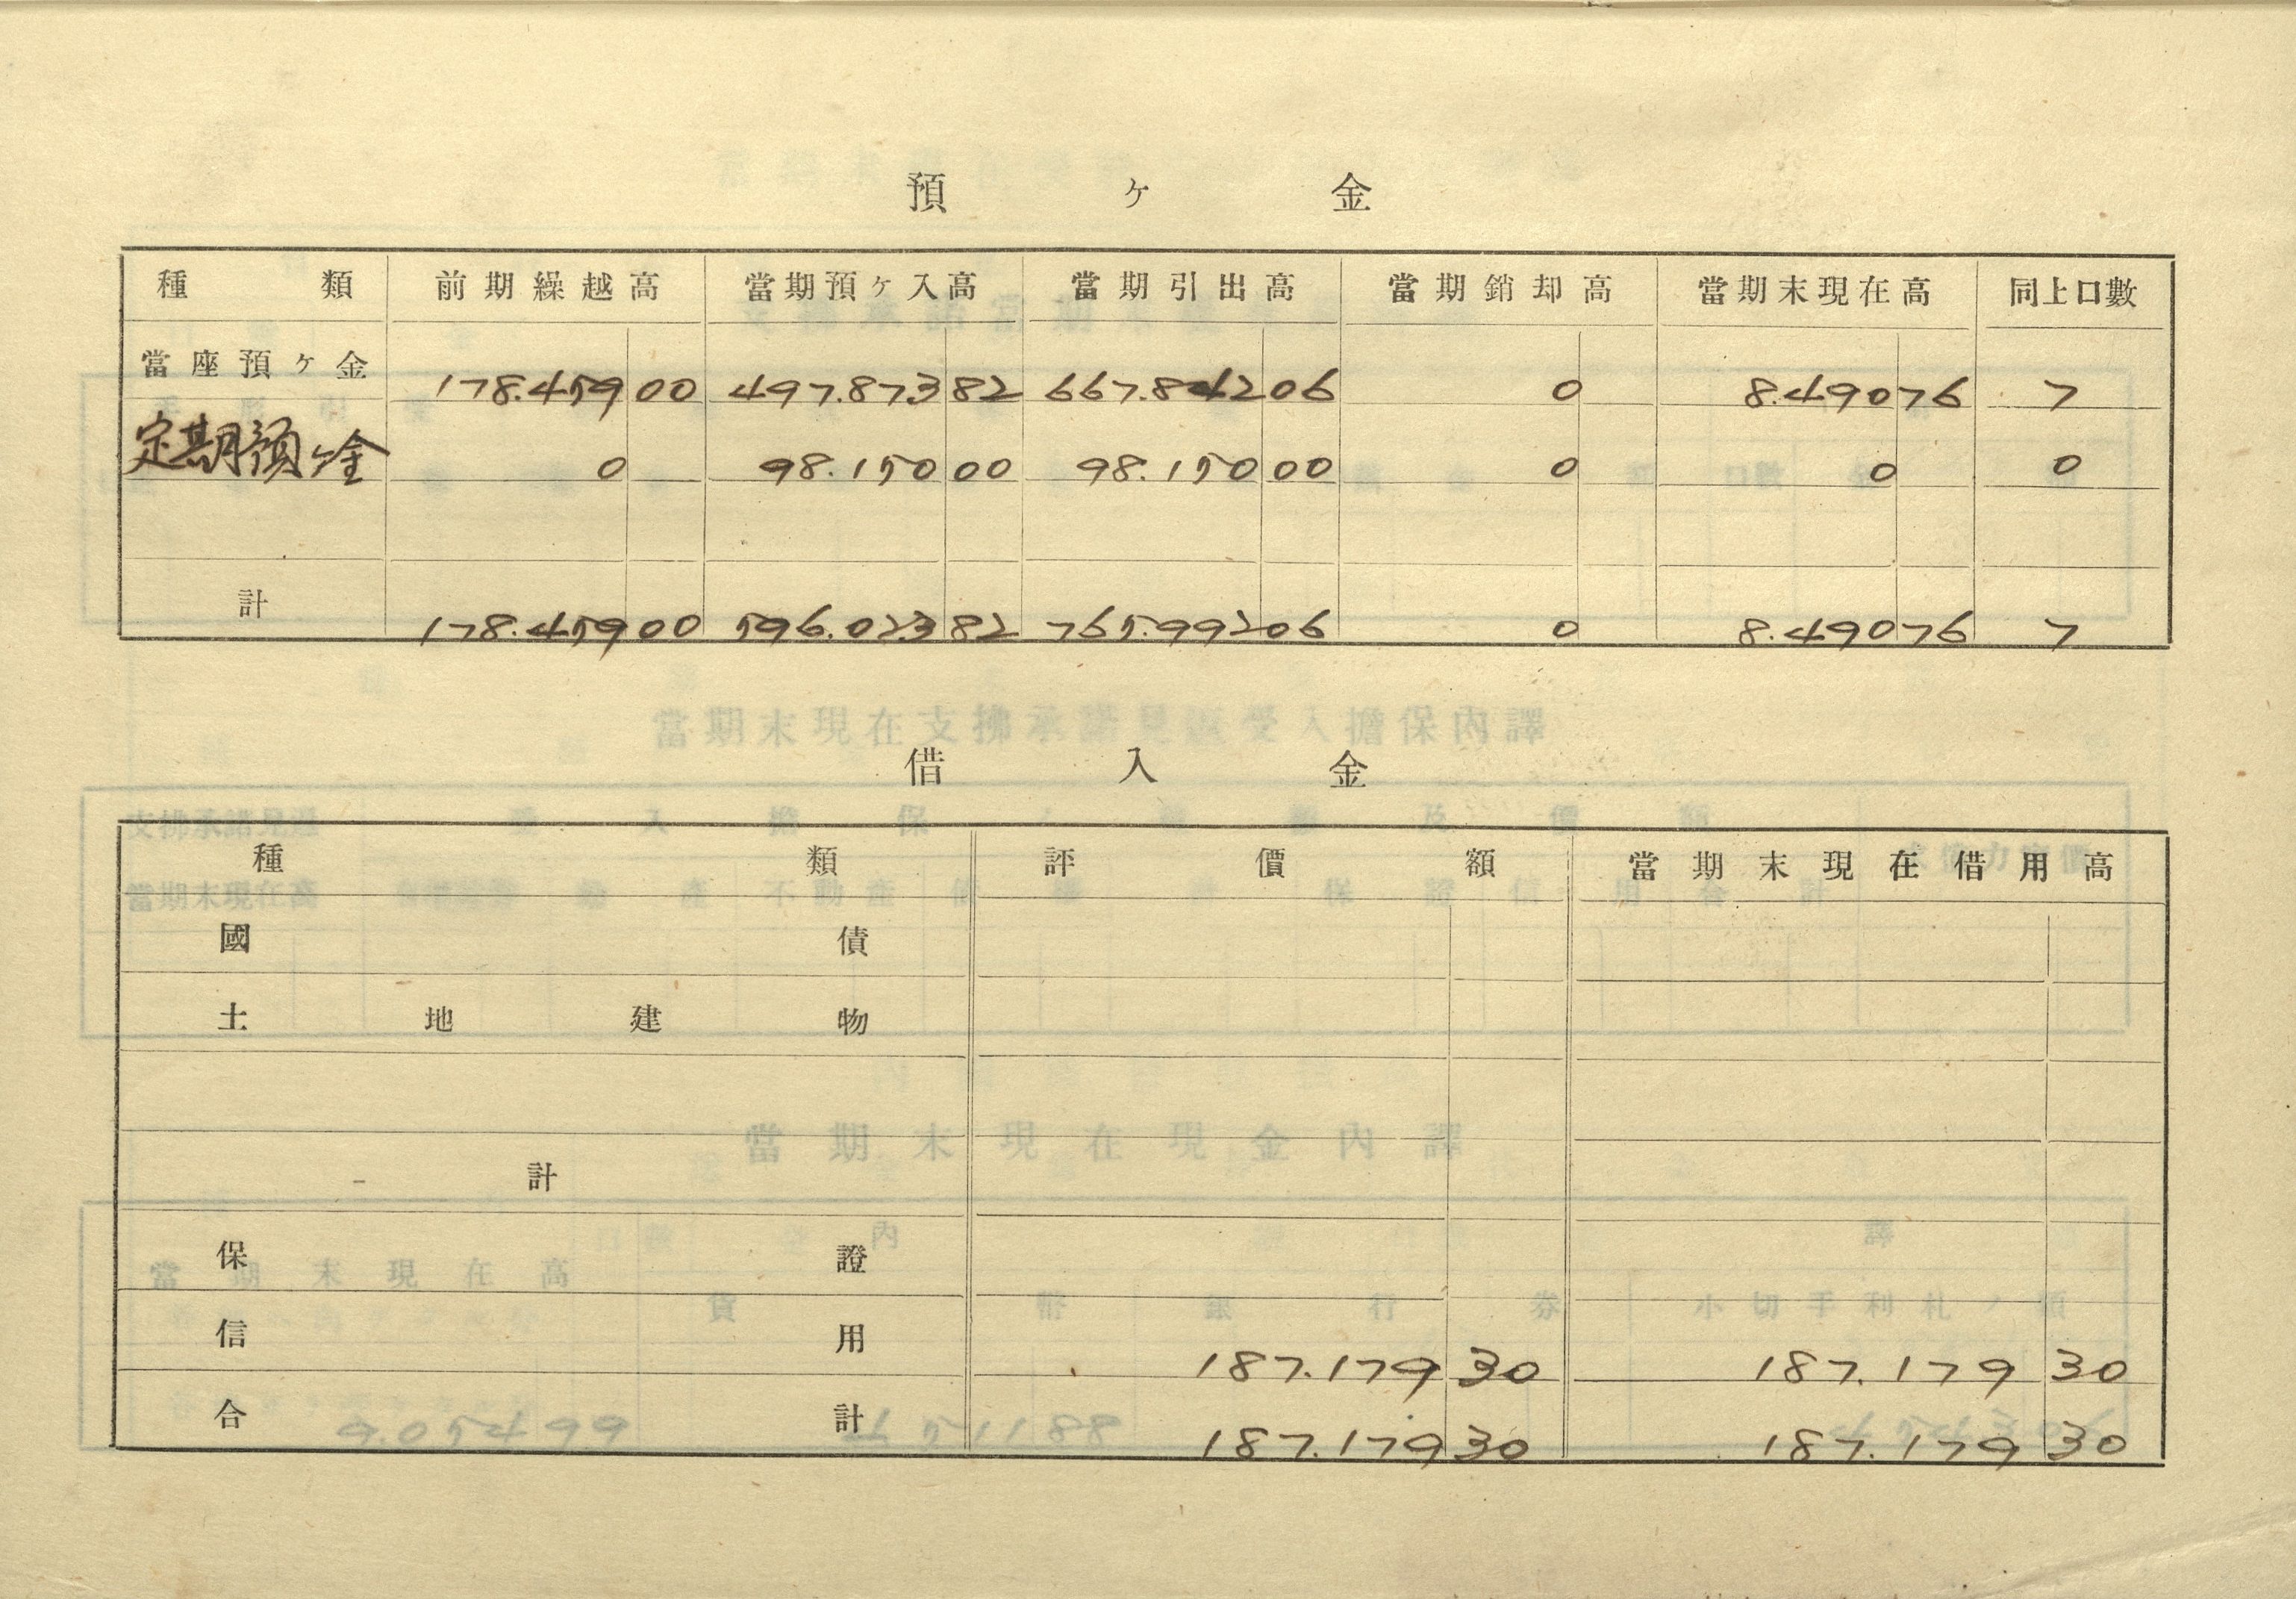 預ヶ金
種類 前期繰越高 當期預ヶ入高 當期引出高 當期銷却高 當期末現在高 同上口數
當座預ヶ金 178.459 00 497.873 82 667.842 06 0 8.490 76 7
定期預ヶ金 0 98.150 00 98.150 00 0 0 0
計 178.459 00 596.023 82 765.992 06 0 8.490 76 7
借入金
種類 評價額 當期末現在借用高
國債
土地建物
計
保證
信用 187.179 30 187.179 30
合計 187.179 30 187.179 30